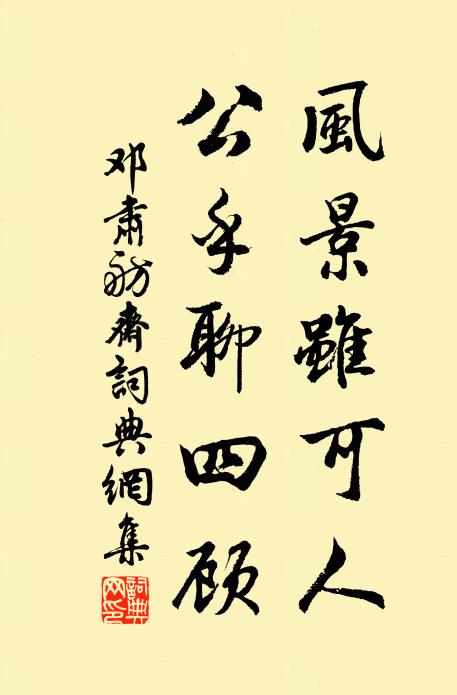 風景雖可人
公乎聊四顾
邓肅舫齋詞典網集
詞典網印